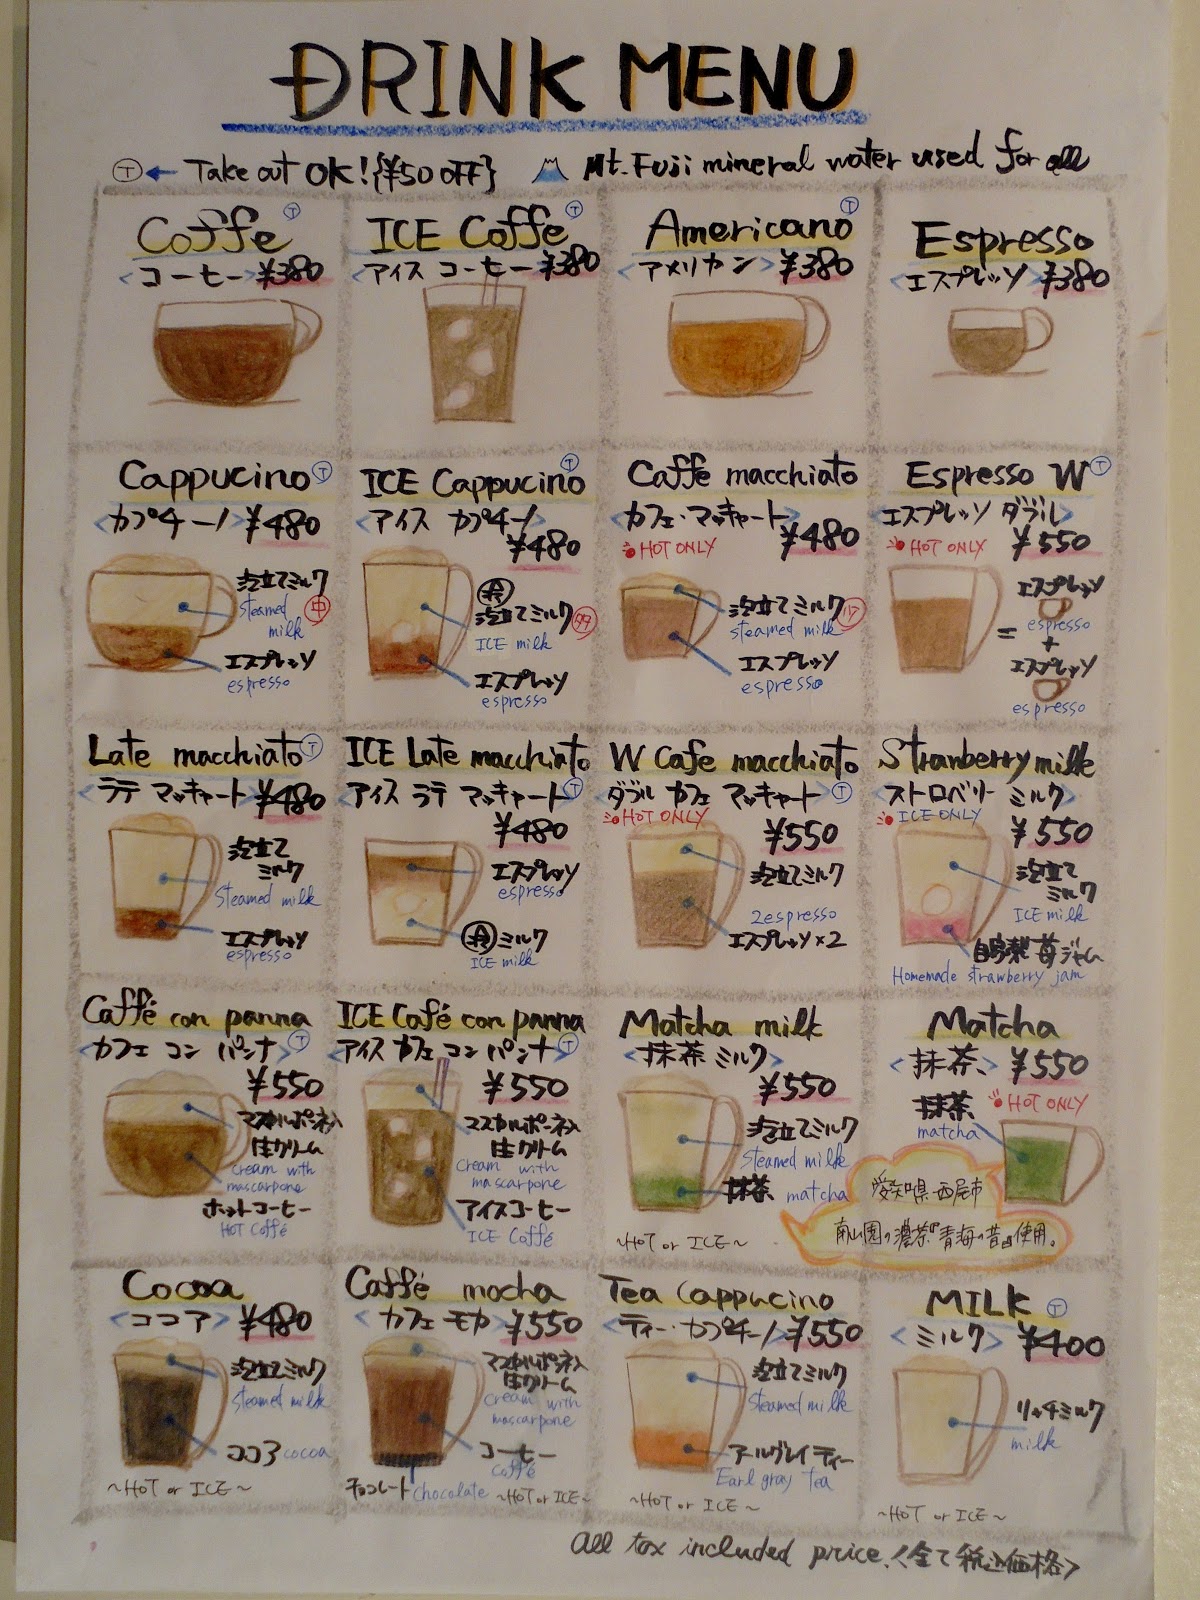 DRINK MENU
Ⓣ← Take out OK! {¥50 OFF} Mt. Fuji mineral water used for all
Coffe Ⓣ
<コーヒー> ¥380
ICE Coffe Ⓣ
<アイス コーヒー> ¥380
Americano Ⓣ
<アメリカン> ¥380
Espresso
<エスプレッソ> ¥380
Cappucino Ⓣ
<カプチーノ> ¥480
泡立てミルク
steamed milk
中
エスプレッソ
espresso
ICE Cappucino Ⓣ
<アイス カプチーノ>
¥480
冷
泡立てミルク
ICE milk
エスプレッソ
espresso
Caffe macchiato
<カフェ・マッキャート>
HOT ONLY ¥480
泡立てミルク 少
steamed milk
エスプレッソ
espresso
Espresso W Ⓣ
<エスプレッソ ダブル>
HOT ONLY ¥550
エスプレッソ
espresso
=
+
エスプレッソ
espresso
Late macchiato Ⓣ
<ラテ マッキャート> ¥480
泡立て
ミルク
Steamed milk
エスプレッソ
espresso
ICE Late macchiato
<アイス ラテ マッキャート> Ⓣ
¥480
エスプレッソ
espresso
冷 ミルク
ICE milk
W Cafe macchiato
<ダブル カフェ マッキャート> Ⓣ
HOT ONLY
¥550
泡立てミルク
2espresso
エスプレッソ×2
Stranberry milk
<ストロベリー ミルク>
ICE ONLY
¥550
泡立て
ミルク
ICE milk
自家製 苺ジャム
Homemade strawberry jam
Caffé con panna
<カフェ コン パンナ> Ⓣ
¥550
マスカルポーネ入
生クリーム
Cream with
mascarpone
ホットコーヒー
HOT Coffé
ICE Café con panna
<アイス カフェ コン パンナ> Ⓣ
¥550
マスカルポーネ入
生クリーム
Cream with
mascarpone
アイスコーヒー
ICE Coffé
Matcha milk
<抹茶 ミルク>
¥550
泡立てミルク
Steamed milk
抹茶 matcha
~HOT or ICE~
Matcha
<抹茶> ¥550
抹茶 HOT ONLY
matcha
愛知県 西尾市
南山園の濃茶『青海の昔』使用。
Cocoa
<ココア> ¥480
泡立てミルク
Steamed milk
ココア cocoa
~HOT or ICE~
Caffé mocha
<カフェ モカ> ¥550
マスカルポーネ入
生クリーム
Cream with
mascarpone
コーヒー
coffé
チョコレート chocolate ~HOT or ICE~
Tea Cappucino
<ティー・カプチーノ> ¥550
泡立てミルク
Steamed milk
アールグレイティー
Earl gray tea
~HOT or ICE~
MILK Ⓣ
<ミルク> ¥400
リッチミルク
milk
~HOT or ICE~
All tax included price.<全て税込価格>